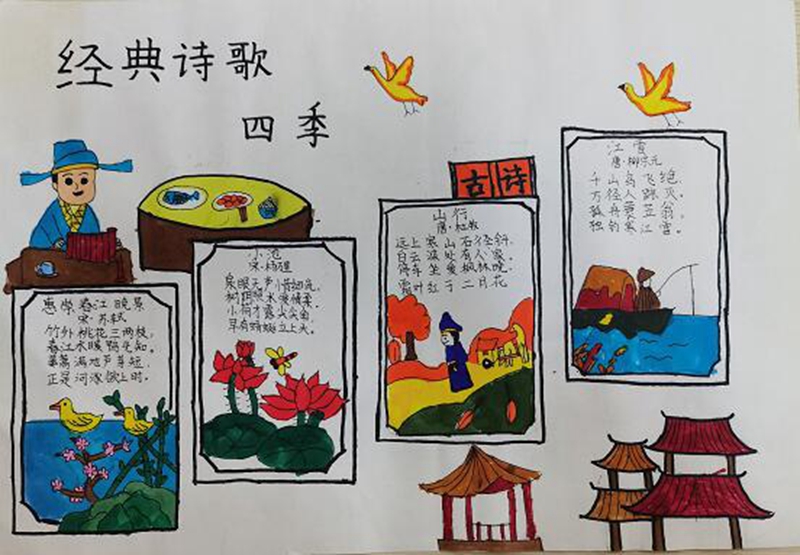 经典诗歌
四季
古诗
惠崇春江晚景
宋·苏轼
竹外桃花三两枝，
春江水暖鸭先知。
蒌蒿满地芦芽短，
正是河豚欲上时。
小池
宋·杨万里
泉眼无声惜细流，
树阴照水爱晴柔。
小荷才露尖尖角，
早有蜻蜓立上头。
山行
唐·杜牧
远上寒山石径斜，
白云深处有人家。
停车坐爱枫林晚，
霜叶红于二月花
江雪
唐·柳宗元
千山鸟飞绝，
万径人踪灭。
孤舟蓑笠翁，
独钓寒江雪。